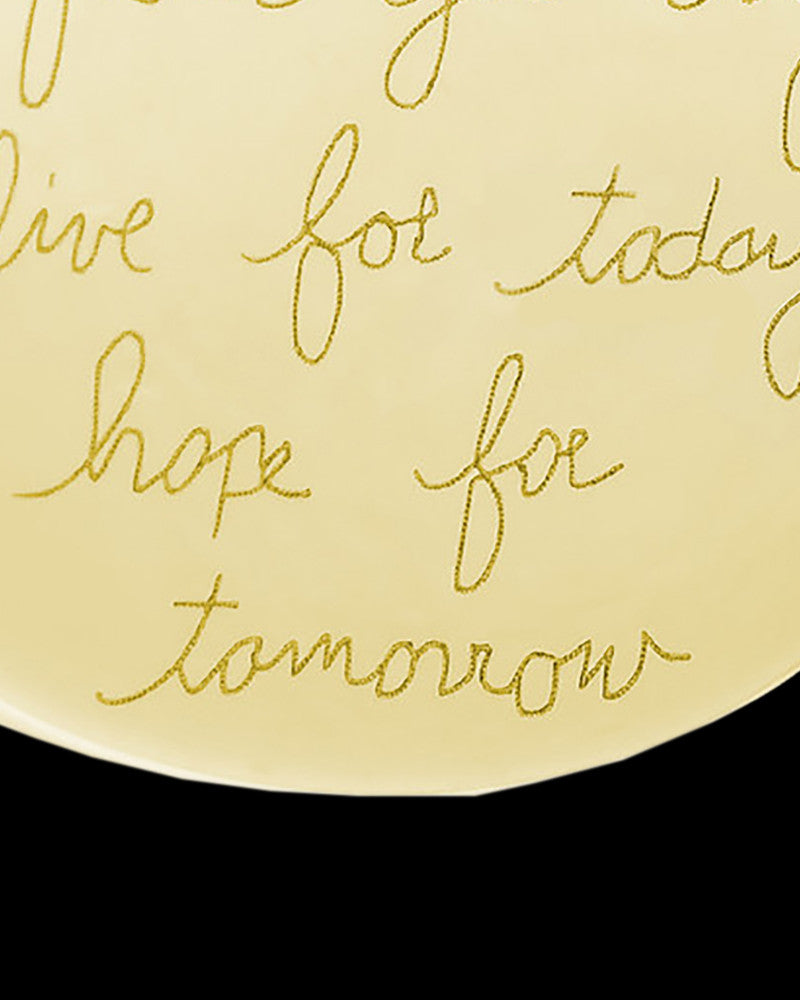 live for today
hope for
tomorrow